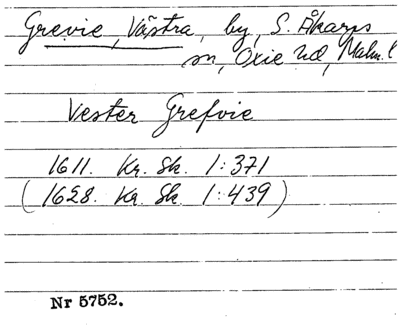 Grevie, Västra, by, S. Åkarps
sn, Oxie hd, Malm. l
Vester Grefvie
1611. Kr. Sk. 1:371
(1628. Kr. Sk. 1:439)
Nr 5752.